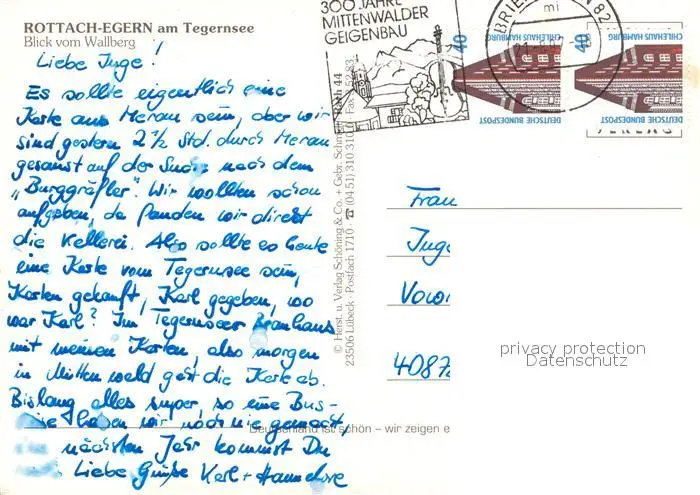 ROTTACH-EGERN am Tegernsee
Blick vom Wallberg
Liebe Inge!
Es sollte eigentlich eine
Karte aus Meran sein, aber wir
sind gestern 2 1/2 Std. durch Meran
gesaust auf der Suche nach dem
„Burggräfler". Wir wollten schon
aufgeben, da fanden wir direkt
die Kellerei. Also sollte es heute
eine Karte vom Tegernsee sein,
Karten gekauft, Karl gegeben, wo
war Karl? Im Tegernseer Brauhaus
mit meinen Karten, also morgen
in Mittenwald geht die Karte ab.
Bislang alles super, so eine Bus-
reise haben wir noch nie gemacht,
nächstes Jahr kommst Du
Liebe Grüße Karl + Hannelore
300 JAHRE
MITTENWALDER
GEIGENBAU
82
mi
40 CHILEHAUS HAMBURG
DEUTSCHE BUNDESPOST
40 CHILEHAUS HAMBURG
DEUTSCHE BUNDESPOST
© Herst. u. Verlag Schöning & Co. + Gebr. Schmidt
23506 Lübeck · Postfach 1710 · ☎ (04 51) 310 310
Deutschland ist schön – wir zeigen e
Frau
Inge
4087
privacy protection
Datenschutz